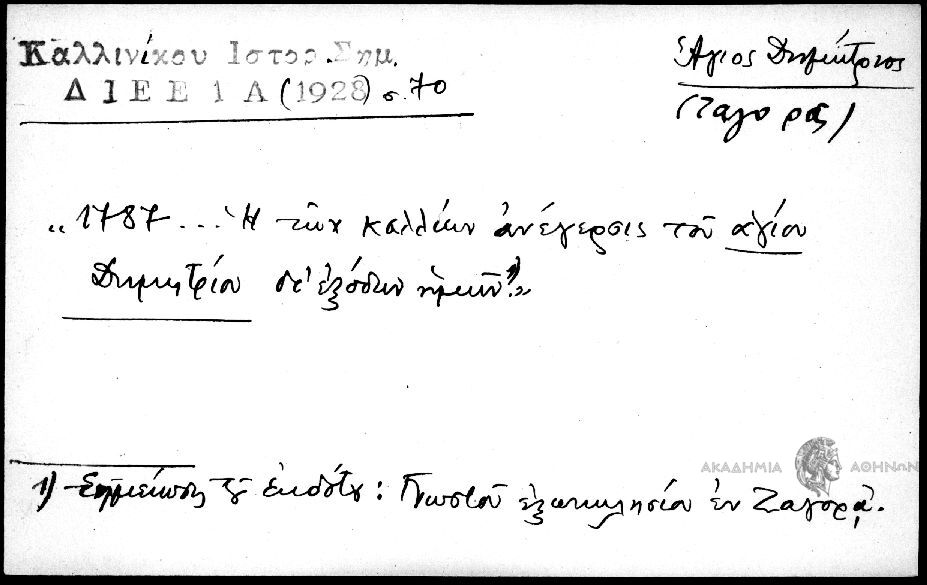 Καλλινίκου Ιστορ.Σημ.
Ἅγιος Δημήτριος
ΔΙΕΕ 1 Α (1928) σ. 70
(Ζαγορᾶς)
„1787 ... Ἡ τῶν καλλίων ἀνέγερσις τοῦ ἁγίου
Δημητρίου δι' ἐξόδων ἡμῶν 1)»
ΑΚΑΔΗΜΙΑ ΑΘΗΝΩΝ
1) Σημείωσις τοῦ ἐκδότου: Γνωστοῦ ἐξωκκλησίου ἐν Ζαγορᾷ.